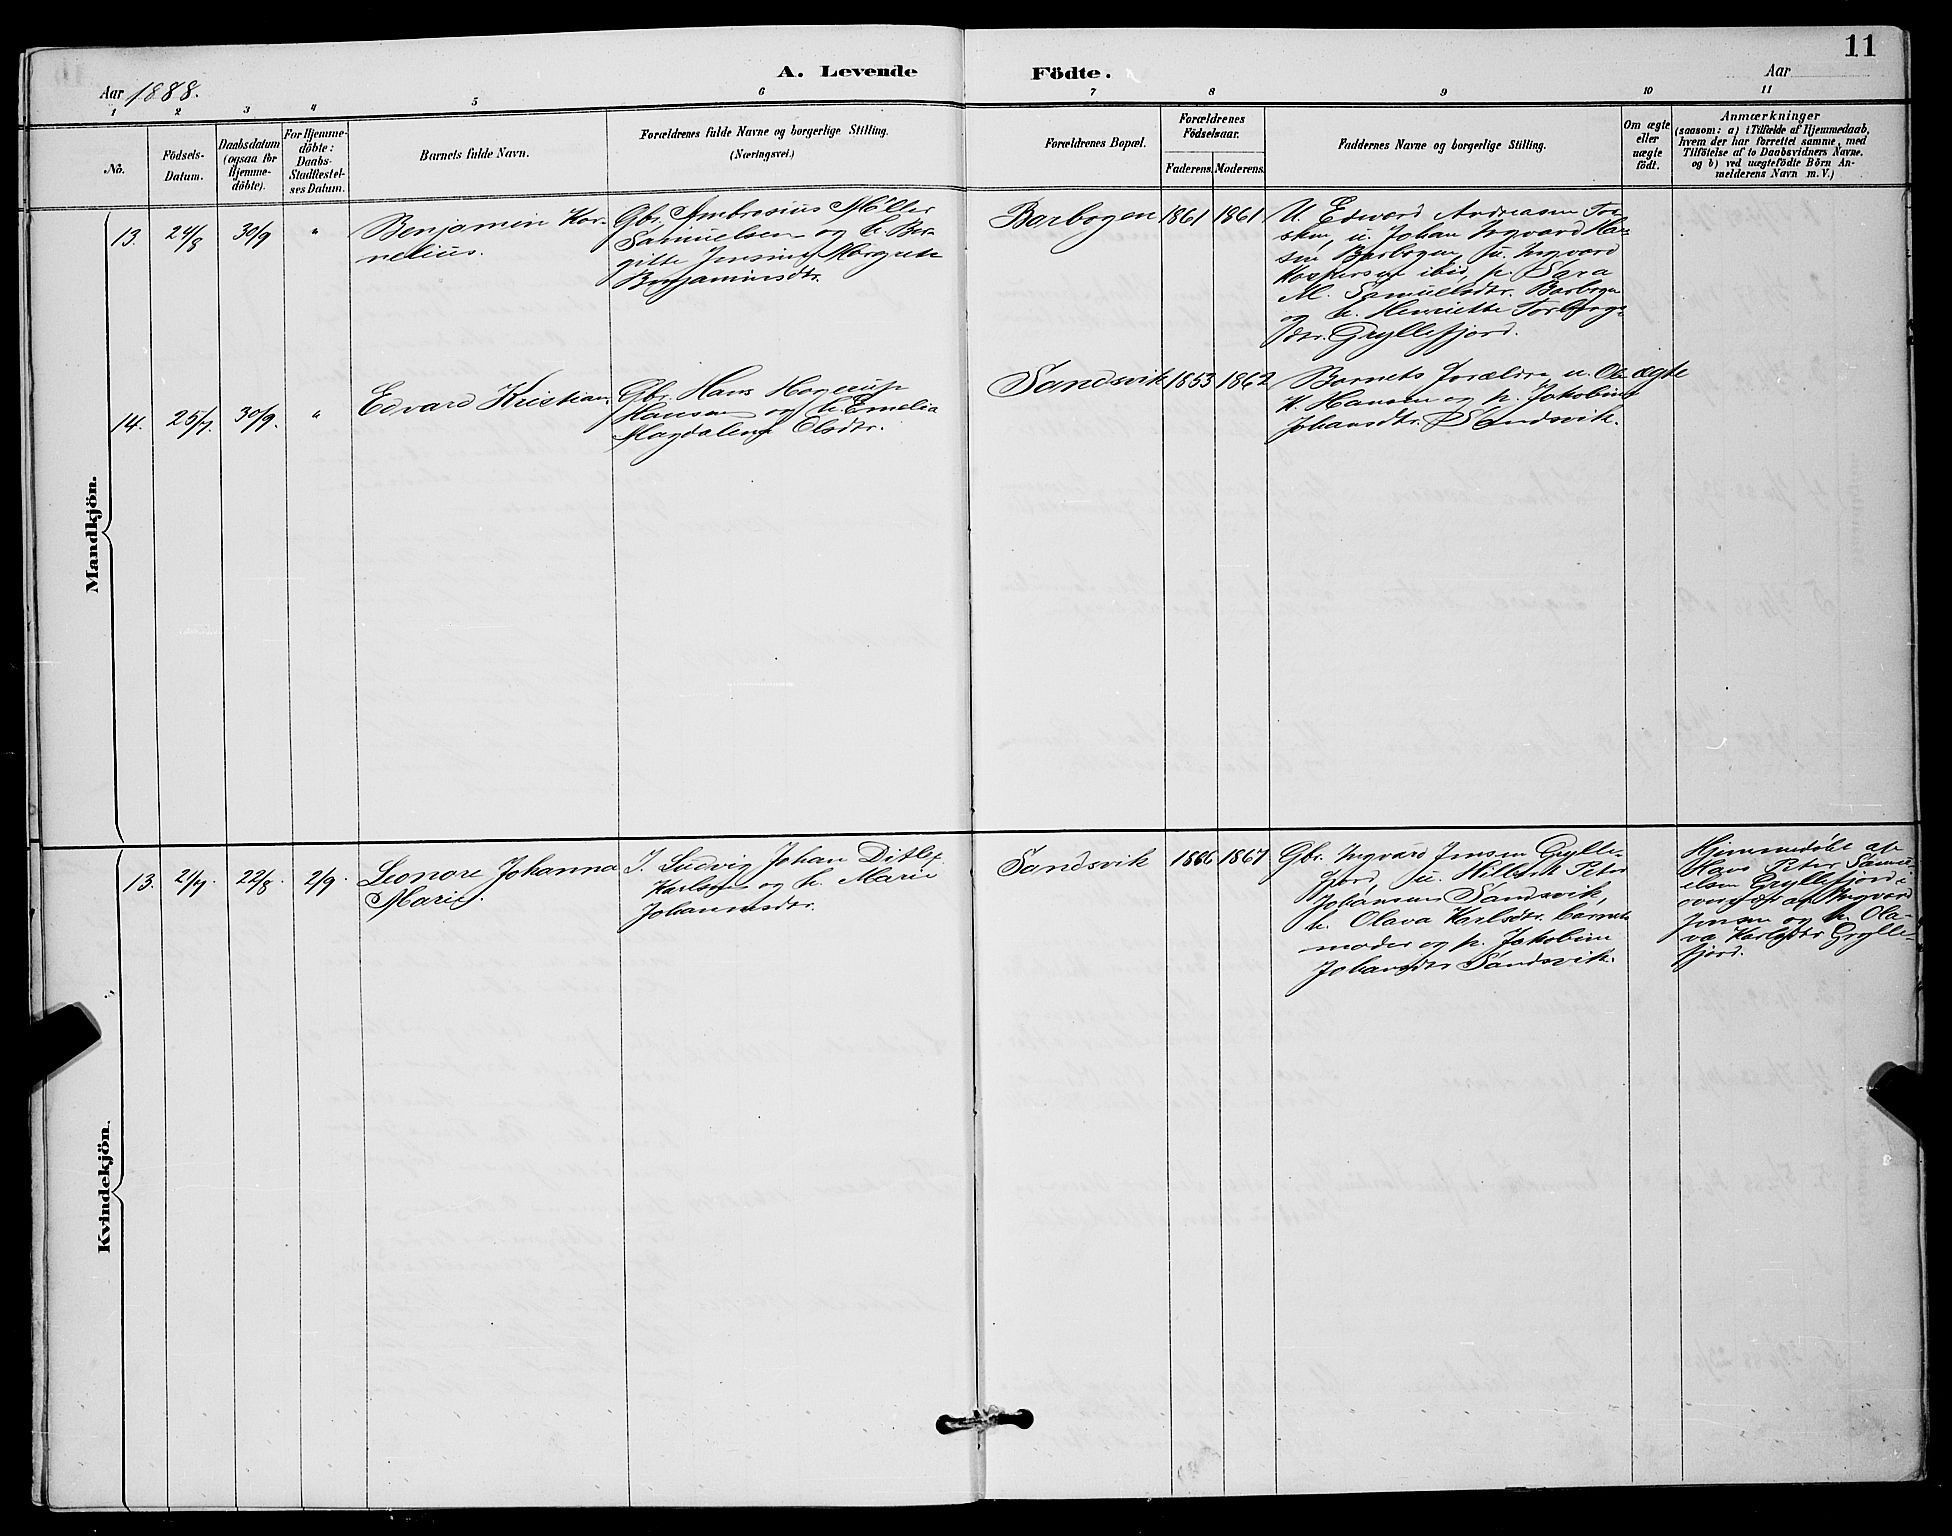 11
A. Levende Födte.
Aar 1888.
Aar
1 2 3 4 5 6 7 8 9 10 11
No.
Födsels-
Datum.
Daabsdatum
(ogsaa for
Hjemme-
döbte).
For Hjemme-
döbte:
Daabs-
Stadfæstel-
ses Datum.
Barnets fulde Navn.
Forældrenes fulde Navne og borgerlige Stilling.
(Næringsvei.)
Forældrenes Bopæl.
Forældrenes
Födselsaar.
Faderens. Moderens.
Faddernes Navne og borgerlige Stilling.
Om ægte
eller
uægte
födt.
Anmærkninger
(saasom: a) i Tilfælde af Hjemmedaab,
hvem der har forrettet samme, med
Tilföielse af to Daabsvidners Navne.
og b) ved uægtefödte Börn An-
melderens Navn m. V.)
Mandkjön.
13. 24/8 30/9 "
Benjamin Kor-
nelius.
Gbr. Ambrosius Möller
Samuelsen og h. Ber-
gitte Jensine Margrete
Benjaminsdtr.
Barbogen 1861 1861
U. Edvard Andreasen Tor-
sken, u. Johan Ingvard Han-
sen Barbogen, u. Ingvard
Kaspersen ibid, p. Sara
M. Samuelsdtr. Barbogen
og h. Henriette Torbergs-
dtr. Gryllefjord.
14. 25/7 30/9. "
Edvard Kristian.
Gbr. Hans Hagerup
Hansen og h. Emelia
Magdalena Elsdtr.
Sandsvik 1853 1862
Barnets Forældre u. Ole
H. Hansen og p. Jakobine
Johansdtr. Sandsvik.
ægte
Kvindekjön.
13. 21/7. 22/8. 2/9.
Leonore Johanna
Marie.
I. Ludvig Johan Ditlef
Karlsen og h. Marie
Johannesdtr.
Sandsvik 1866 1867
Gbr. Ingvard Jensen Grylle-
fjord, u. Hilbert Peter
Johansen Sandsvik,
h. Olava Karlsdtr. Barnets
moder og p. Jakobine
Johansdtr Sandsvik.
Hjemmedöbt af
Hans Peter Samu-
elsen Gryllefjord i
overvær af Ingvard
Jensen og h. Ola-
va Karlsdtr Grylle-
fjord.